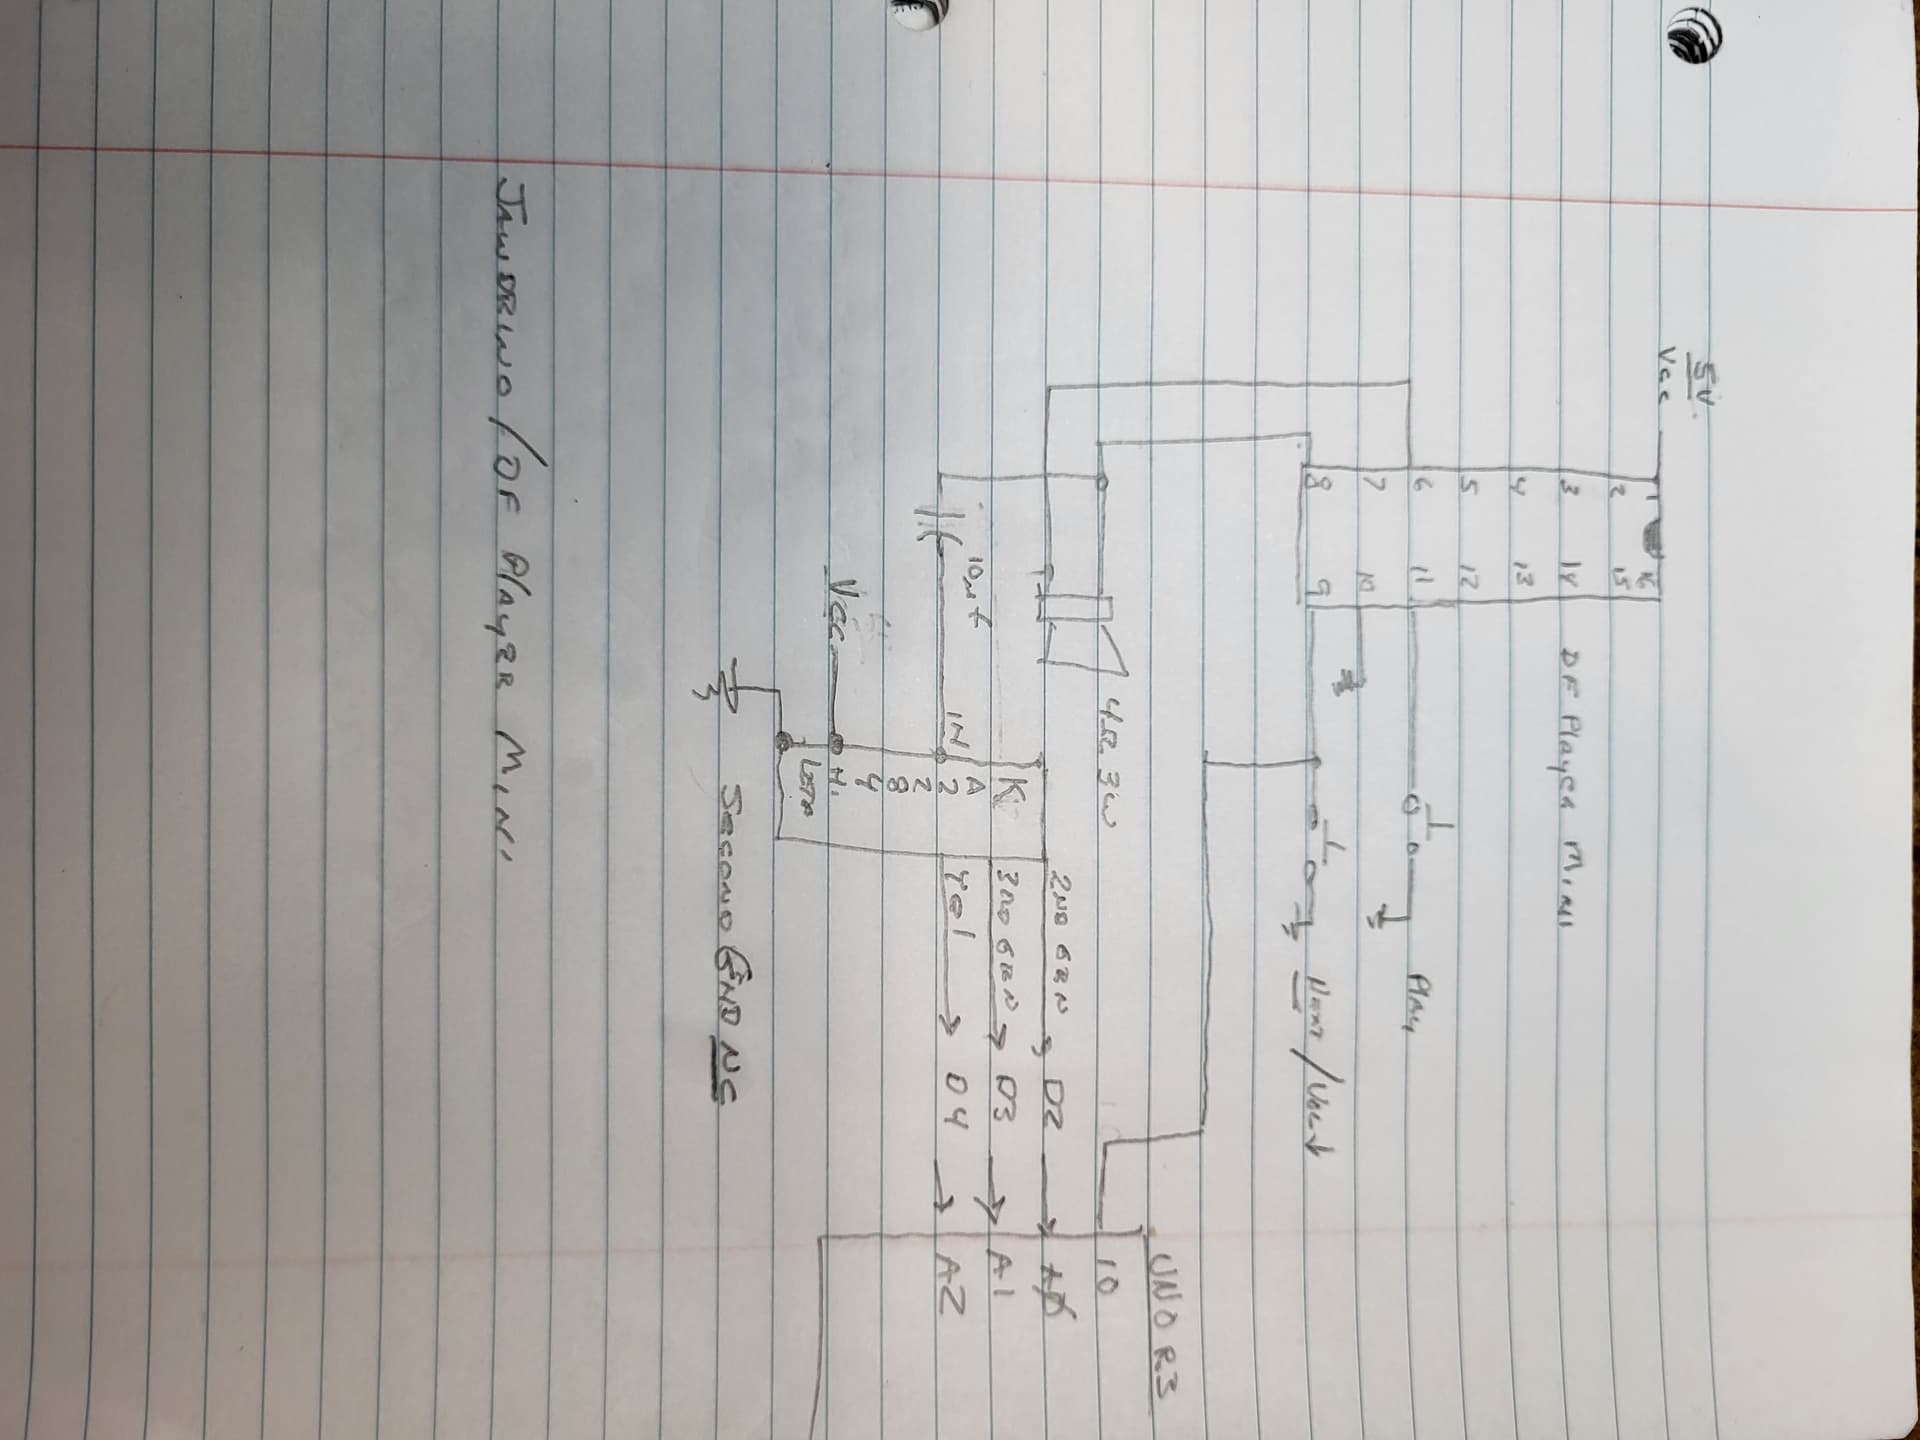 5V
Vcc
1 16
2 15
3 14
4 13
5 12
6 11
7 10
8 9
DF Player Mini
Play
Next / Vol↓
4Ω 3W
10µf
IN
Vcc
K
A
2
2
8
4
H1
2ND GRN → D2 → A0
3RD GRN → D3 → A1
Yel → D4 → A2
10
UNO R3
SECOND GND NC
JAWDRINO / DF PLAYER MINI